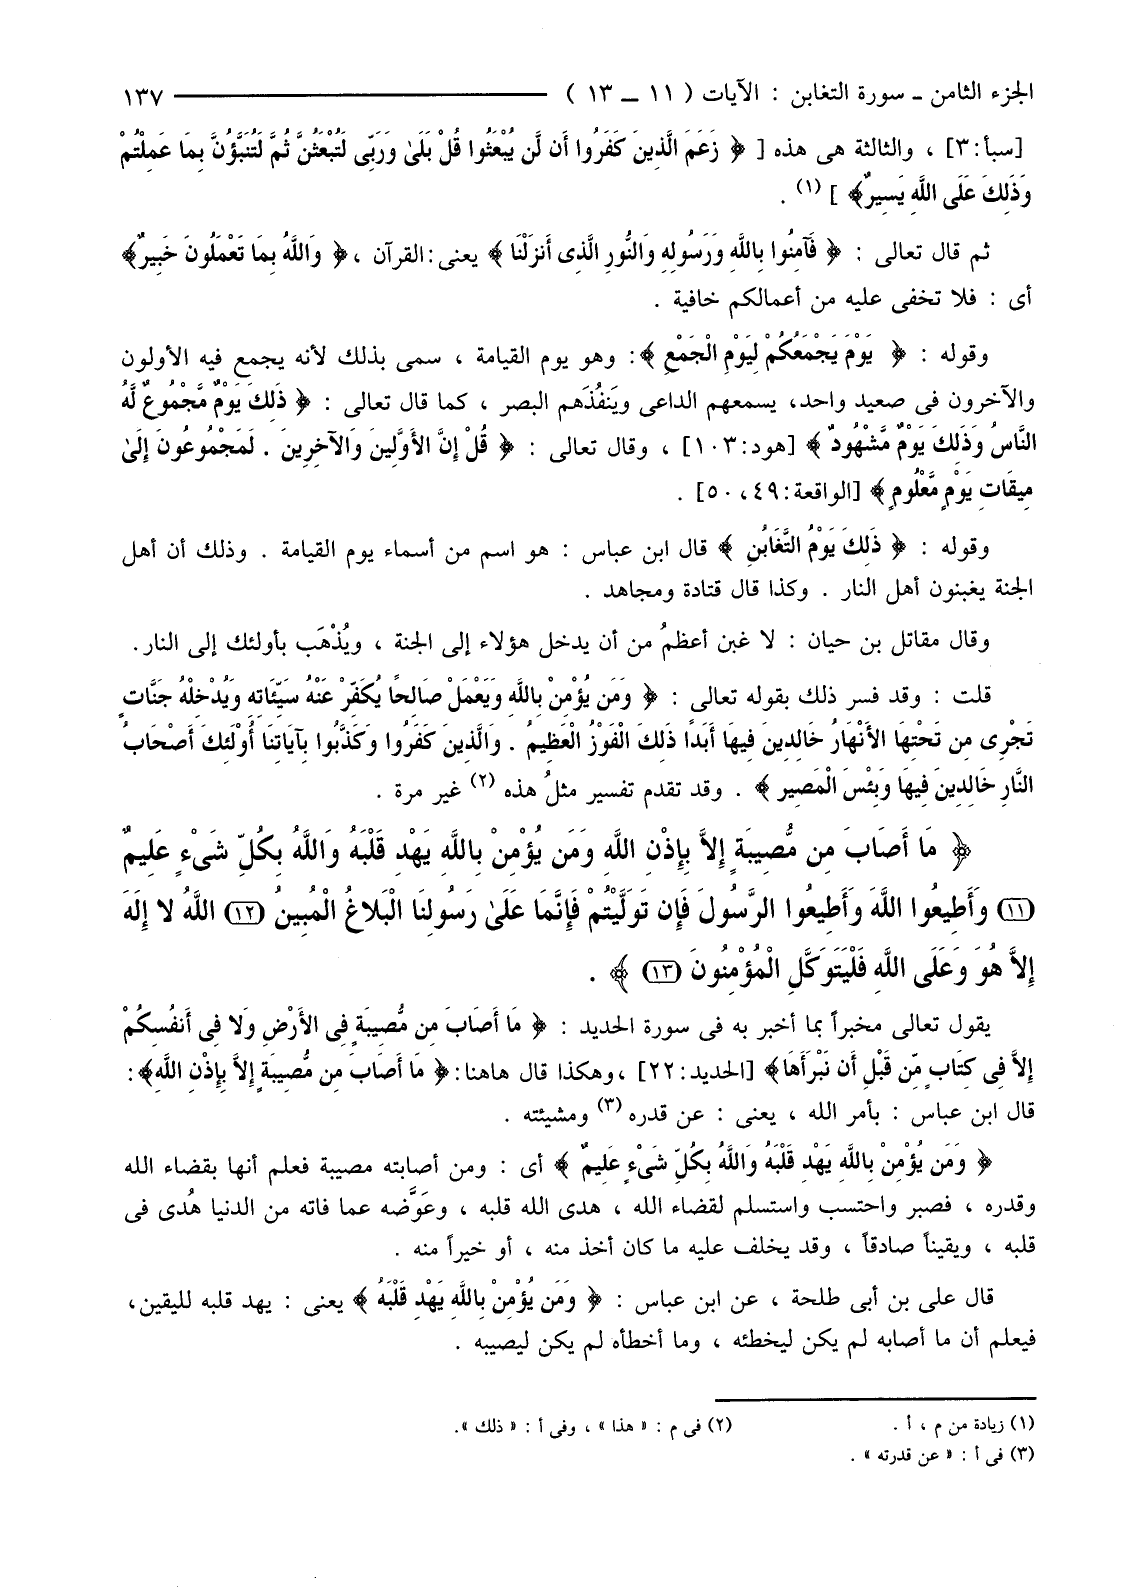 الجزء الثامن ـ سورة التغابن : الآيات ( ١١ ــ ١٣ ) ١٣٧
[سبأ:٣] ، والثالثة هى هذه [ ﴿ زَعَمَ الَّذِينَ كَفَرُوا أَن لَّن يُبْعَثُوا قُلْ بَلَىٰ وَرَبِّى لَتُبْعَثُنَّ ثُمَّ لَتُنَبَّؤُنَّ بِمَا عَمِلْتُمْ
وَذَلِكَ عَلَى اللَّهِ يَسِيرٌ﴾ ] (١) .
ثم قال تعالى : ﴿ فَآمِنُوا بِاللَّهِ وَرَسُولِهِ وَالنُّورِ الَّذِى أَنزَلْنَا ﴾ يعنى:القرآن ،﴿ وَاللَّهُ بِمَا تَعْمَلُونَ خَبِيرٌ﴾
أى : فلا تخفى عليه من أعمالكم خافية .
وقوله : ﴿ يَوْمَ يَجْمَعُكُمْ لِيَوْمِ الْجَمْعِ ﴾: وهو يوم القيامة ، سمى بذلك لأنه يجمع فيه الأولون
والآخرون فى صعيد واحد، يسمعهم الداعى ويَنفُذَهم البصر ، كما قال تعالى : ﴿ ذَلِكَ يَوْمٌ مَّجْمُوعٌ لَّهُ
النَّاسُ وَذَلِكَ يَوْمٌ مَّشْهُودٌ ﴾ [هود:١٠٣] ، وقال تعالى : ﴿ قُلْ إِنَّ الأَوَّلِينَ وَالآخِرِينَ . لَمَجْمُوعُونَ إِلَىٰ
مِيقَاتِ يَوْمٍ مَّعْلُومٍ ﴾ [الواقعة:٤٩، ٥٠] .
وقوله : ﴿ ذَلِكَ يَوْمُ التَّغَابُنِ ﴾ قال ابن عباس : هو اسم من أسماء يوم القيامة . وذلك أن أهل
الجنة يغبنون أهل النار . وكذا قال قتادة ومجاهد .
وقال مقاتل بن حيان : لا غبن أعظمُ من أن يدخل هؤلاء إلى الجنة ، ويُذْهَب بأولئك إلى النار.
قلت : وقد فسر ذلك بقوله تعالى : ﴿ وَمَن يُؤْمِنْ بِاللَّهِ وَيَعْمَلْ صَالِحًا يُكَفِّرْ عَنْهُ سَيِّئَاتِهِ وَيُدْخِلْهُ جَنَّاتٍ
تَجْرِى مِن تَحْتِهَا الأَنْهَارُ خَالِدِينَ فِيهَا أَبَداً ذَلِكَ الْفَوْزُ الْعَظِيمُ . وَالَّذِينَ كَفَرُوا وَكَذَّبُوا بِآيَاتِنَا أُولَئِكَ أَصْحَابُ
النَّارِ خَالِدِينَ فِيهَا وَبِئْسَ الْمَصِير ﴾ . وقد تقدم تفسير مثلُ هذه (٢) غير مرة .
﴿ مَا أَصَابَ مِن مُّصِيبَةٍ إِلاَّ بِإِذْنِ اللَّهِ وَمَن يُؤْمِنْ بِاللَّهِ يَهْدِ قَلْبَهُ وَاللَّهُ بِكُلِّ شَىْءٍ عَلِيمٌ
(١١) وَأَطِيعُوا اللَّهَ وَأَطِيعُوا الرَّسُولَ فَإِن تَوَلَّيْتُمْ فَإِنَّمَا عَلَىٰ رَسُولِنَا الْبَلاغُ الْمُبِينُ (١٢) اللَّهُ لا إِلَهَ
إِلاَّ هُوَ وَعَلَى اللَّهِ فَلْيَتَوَكَّلِ الْمُؤْمِنُونَ (١٣) ﴾ .
يقول تعالى مخبراً بما أخبر به فى سورة الحديد : ﴿ مَا أَصَابَ مِن مُّصِيبَةٍ فِى الأَرْضِ وَلا فِى أَنفُسِكُمْ
إِلاَّ فِى كِتَابٍ مِّن قَبْلِ أَن نَّبْرَأَهَا﴾ [الحديد:٢٢] ،وهكذا قال هاهنا:﴿ مَا أَصَابَ مِن مُّصِيبَةٍ إِلاَّ بِإِذْنِ اللَّهِ﴾:
قال ابن عباس : بأمر الله ، يعنى : عن قدره (٣) ومشيئته .
﴿ وَمَن يُؤْمِنْ بِاللَّهِ يَهْدِ قَلْبَهُ وَاللَّهُ بِكُلِّ شَىْءٍ عَلِيمٌ ﴾ أى : ومن أصابته مصيبة فعلم أنها بقضاء الله
وقدره ، فصبر واحتسب واستسلم لقضاء الله ، هدى الله قلبه ، وعَوَّضه عما فاته من الدنيا هُدى فى
قلبه ، ويقيناً صادقاً ، وقد يخلف عليه ما كان أخذ منه ، أو خيراً منه .
قال على بن أبى طلحة ، عن ابن عباس : ﴿ وَمَن يُؤْمِنْ بِاللَّهِ يَهْدِ قَلْبَهُ ﴾ يعنى : يهد قلبه لليقين،
فيعلم أن ما أصابه لم يكن ليخطئه ، وما أخطأه لم يكن ليصيبه .
(١) زيادة من م ، أ . (٢) فى م : « هذا » ، وفى أ : « ذلك ».
(٣) فى أ : « عن قدرته » .